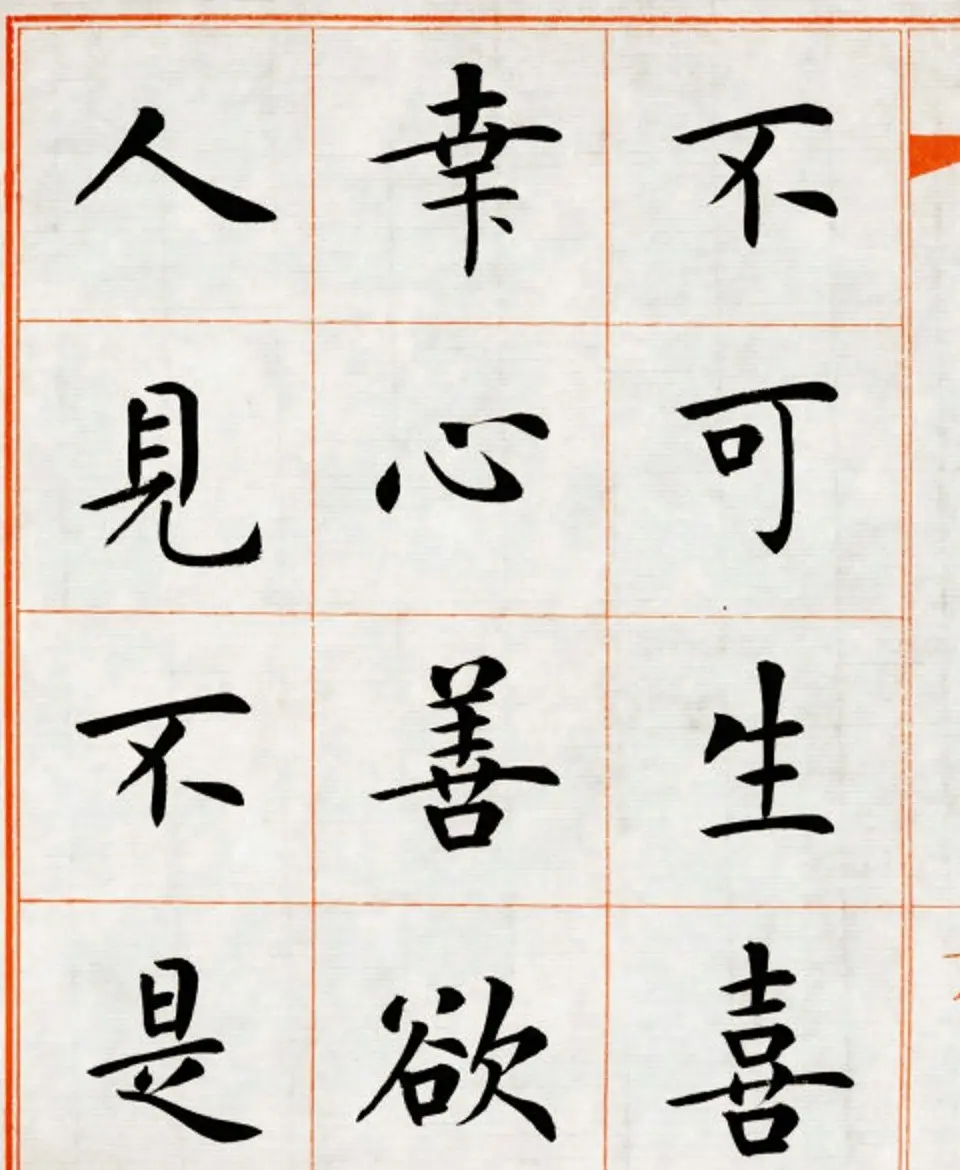 不可生喜
幸心善欲
人見不是